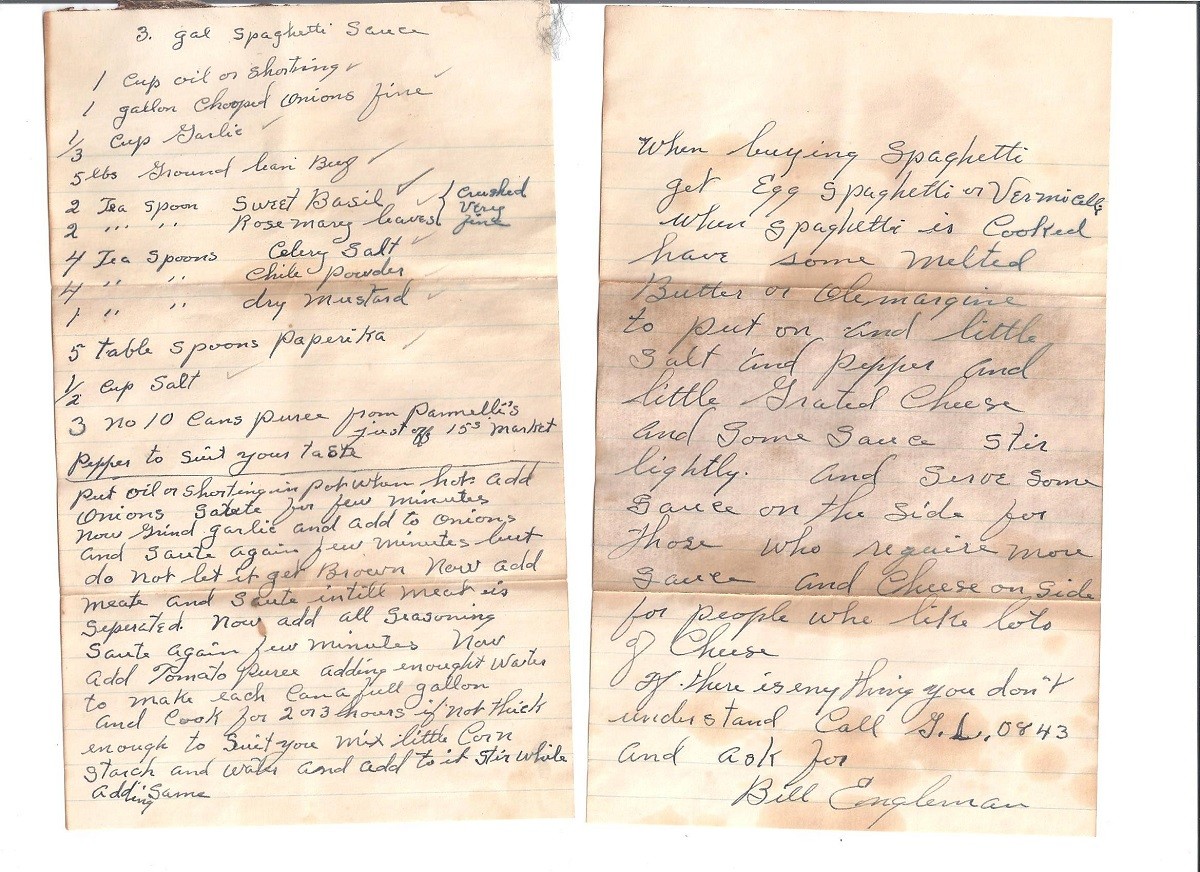 3. gal Spaghetti Sauce
1 Cup oil or Shorting
1 gallon Chopped Onions fine
1/3 Cup Garlic
5 lbs Ground lean Beef
2 Tea Spoon Sweet Basil
2 " " " Rosemary leaves
{ Crushed
Very
fine
4 Tea Spoons Celery Salt
4 " " Chile Powder
1 " " dry Mustard
5 table Spoons Paperika
1/2 Cup Salt
3 no 10 Cans puree from Pannelli's
just off 15 Market
Pepper to Suit your taste
Put oil or Shorting in pot when hot add
Onions Saute for few minutes
Now Grind garlic and add to Onions
and Saute again few minutes but
do not let it get Brown Now add
meate and Saute intill meat is
Seperated. Now add all Seasoning
Saute again few minutes Now
add Tomato Puree adding enought Water
to make each Can a full gallon
and Cook for 2 or 3 hours if not thick
enough to Suit you Mix little Corn
Starch and Water and add to it Stir while
adding Same
When buying Spaghetti
get Egg Spaghetti or Vermicelli
when Spaghetti is Cooked
have some Melted
Butter or Olemargine
to put on and little
Salt and Pepper and
little Grated Cheese
and Some Sauce Stir
lightly. and Serve Some
Sauce on the Side for
those who require more
Sauce and Cheese on Side
for people who like lots
of Cheese
If there is eny thing you don't
understand Call G.L. 0843
and ask for
Bill Engleman